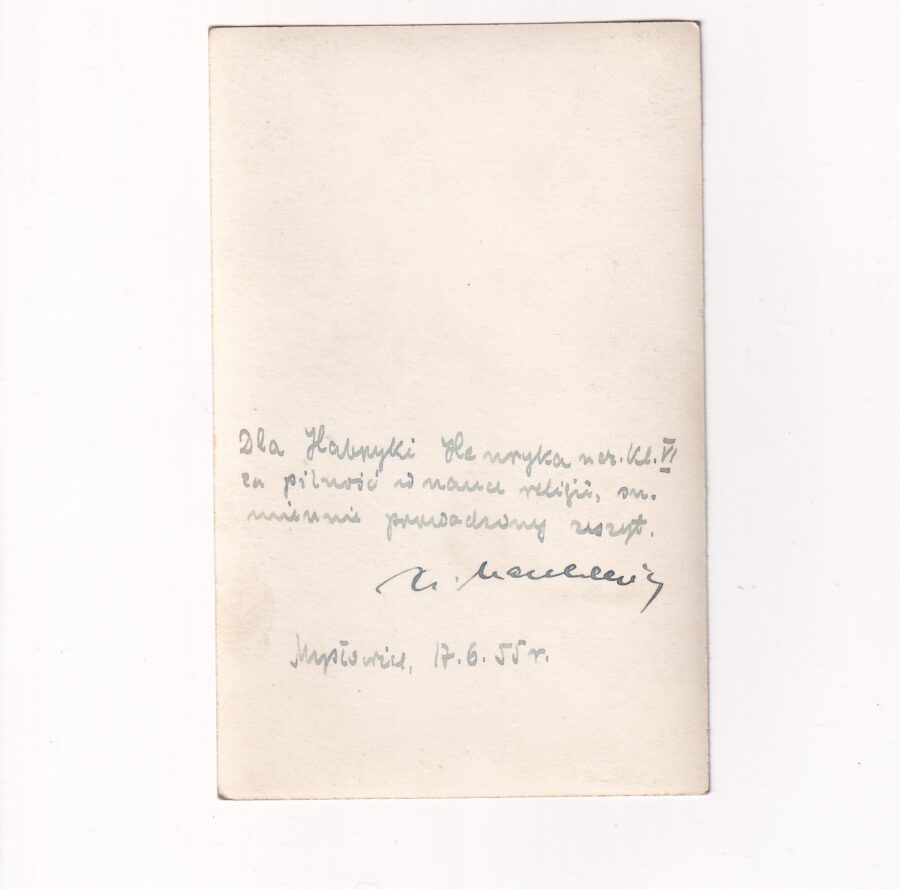 Dla Habryki Henryka ucz. kl. VI
za pilność w nauce religii, su-
miennie prowadzony zeszyt.
Mysłowice, 17.6.55r.